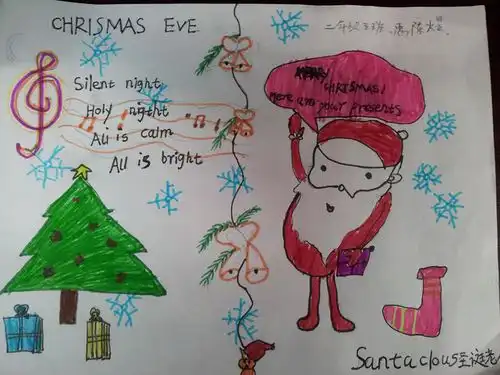 CHRISMAS EVE
Silent night
Holy night
All is calm
All is bright
CHRISMAS!
Here are your presents
Santa claus圣诞老